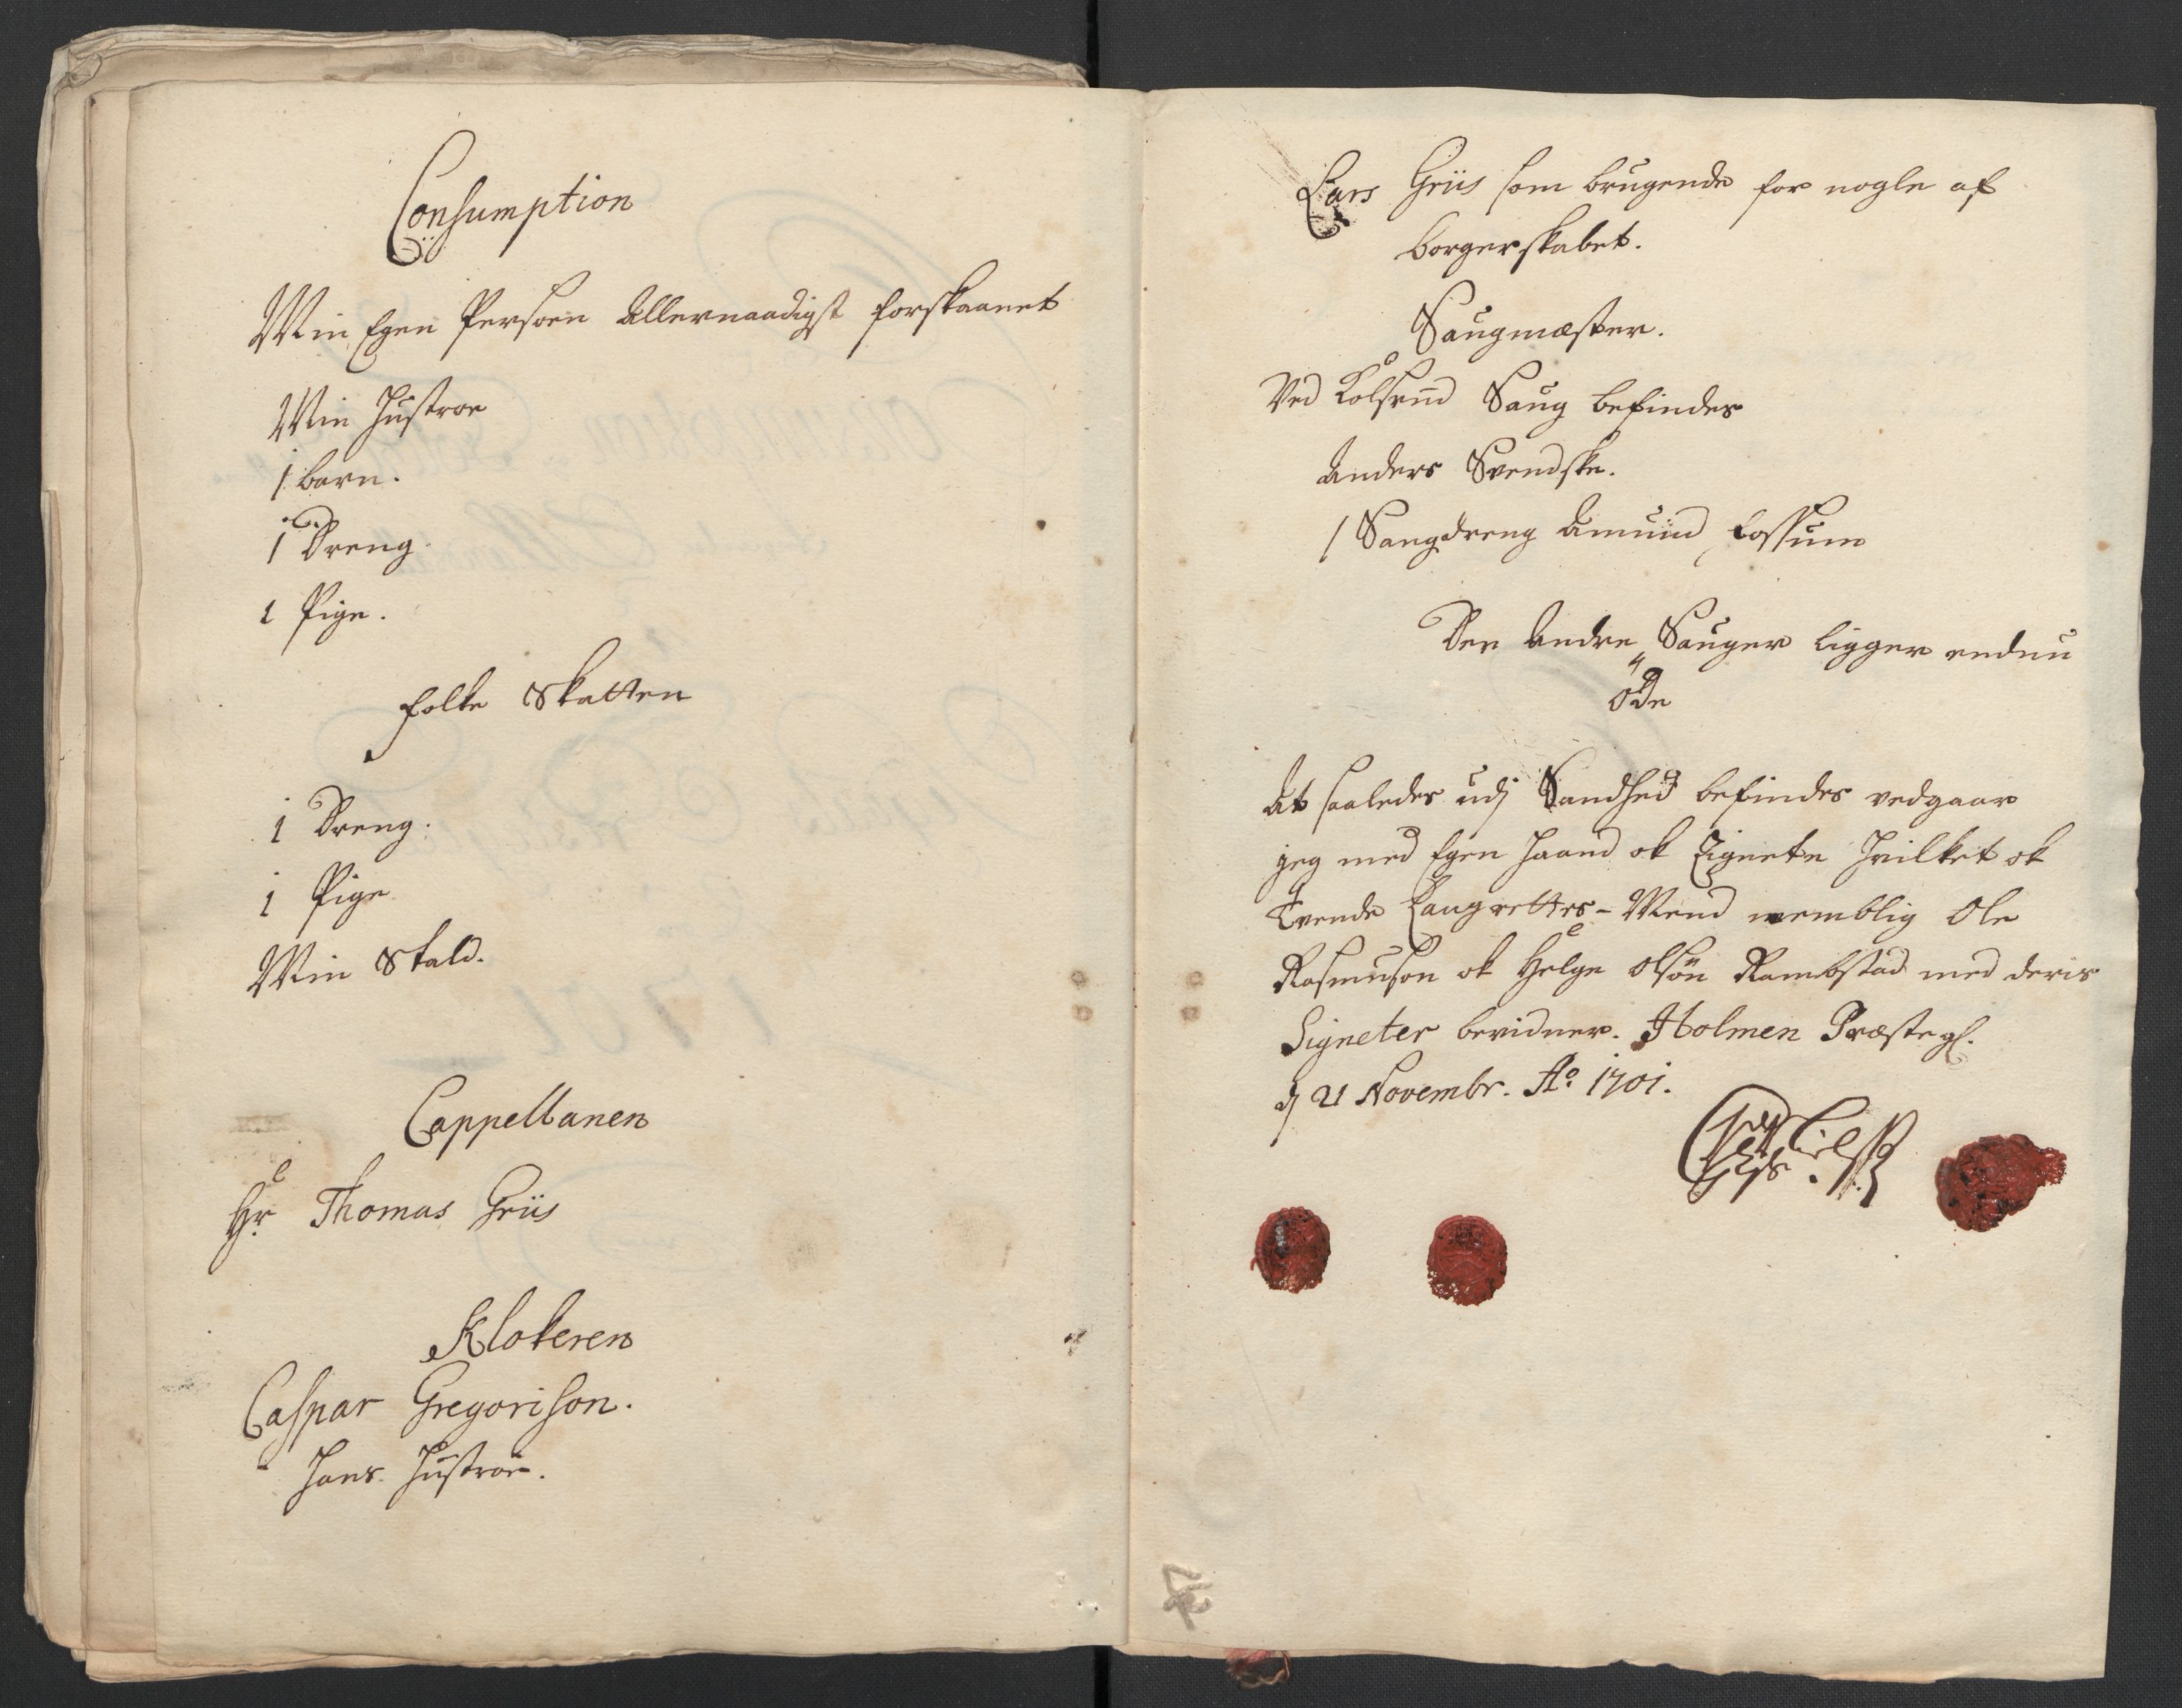 Consumption
Min Egen Persoen Allernaadigst forskaanet
Min Hustroe
1 barn.
1 Dreng.
1 Pige.
Folke Skatten
1 Dreng.
1 Pige
Min Stald.
Cappellanen
Hr. Thomas Griis
Klokeren
Caspar Gregorison.
Hans Hustroe.
Lars Griis som brugende for nogle af
borgerskabet.
Saugmæster.
Ved Saug befindes
Anders Svendske.
1 Saugdreng Amund Fossum
Den Andre Sauger ligger endnu
Öde
At saaledes udj Sandhed befindes vedgaar
jeg med Egen Haand ok Zignete Hvilket ok
Tvende Laugrettes-Mend nemblig Ole
Rasmuson ok Helge Olsön Rambstad med deris
Signeter bevidner. Holmen Præstegl.
d 21 Novembr. Ao. 1701.